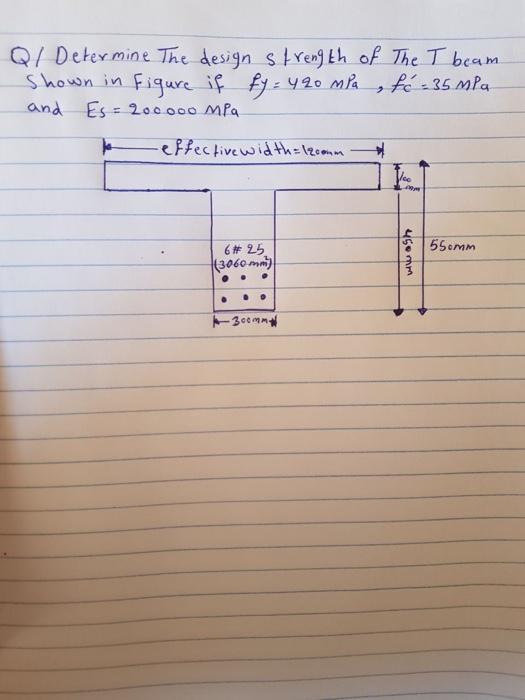 Q/ Determine The design strength of The T beam
Shown in Figure if fy = 420 MPa , fć = 35 MPa
and Es = 200000 MPa
effective width = 1200mm
100
mm
450 mm
550mm
6# 25
(3060 mm²)
300mm